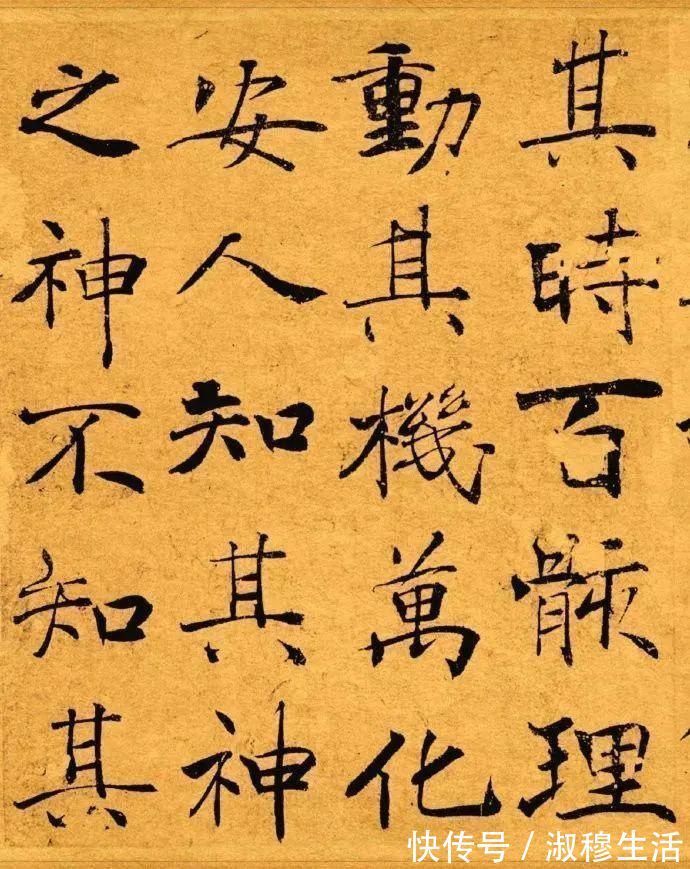 其時百骸理
動其機萬化
安人知其神
之神不知其
快传号/淑穆生活